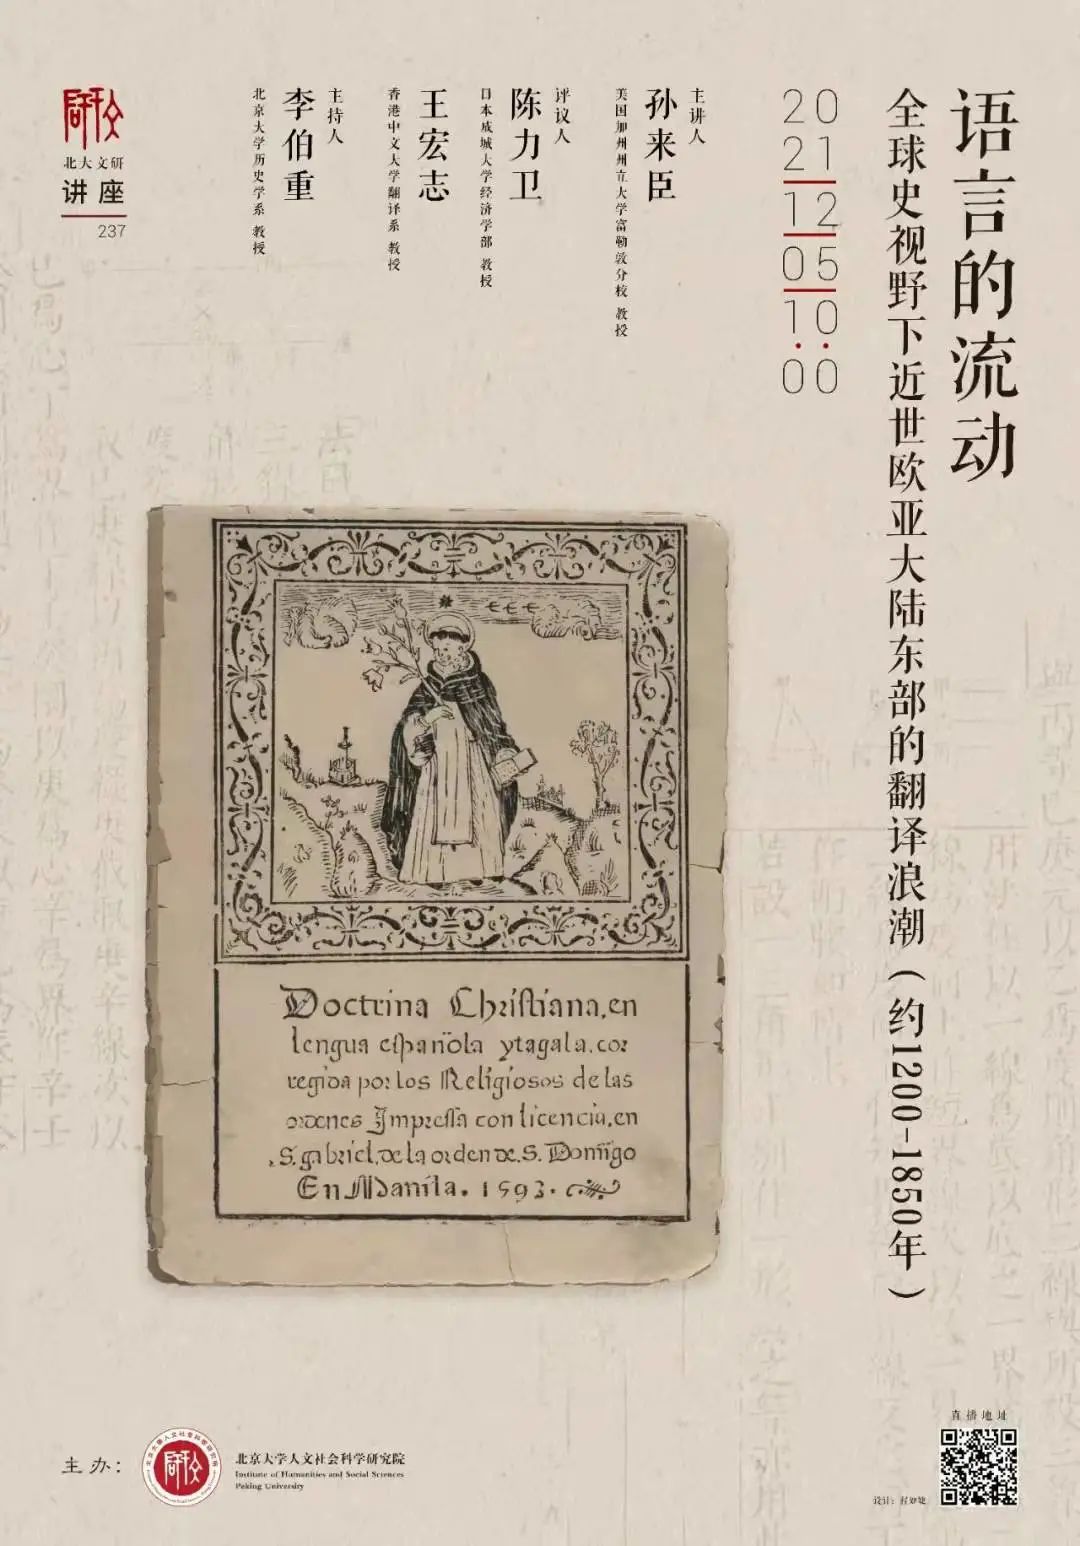 语言的流动
全球史视野下近世欧亚大陆东部的翻译浪潮（约1200-1850年）
20
21
12
05
10:00
主讲人
孙来臣
美国加州州立大学富勒敦分校 教授
评议人
陈力卫
日本成城大学经济学部 教授
王宏志
香港中文大学翻译系 教授
主持人
李伯重
北京大学历史学系 教授
北大文研
讲座
237
Doctrina Christiana, en
lengua española ytagala, cor
regida por los Religiosos de las
ordenes Impressa con licencia, en
S. gabriel. de la orden de. S. Domĩgo
En Manila. 1593.
直播地址
主办：
北京大学人文社会科学研究院
Institute of Humanities and Social Sciences
Peking University
设计：